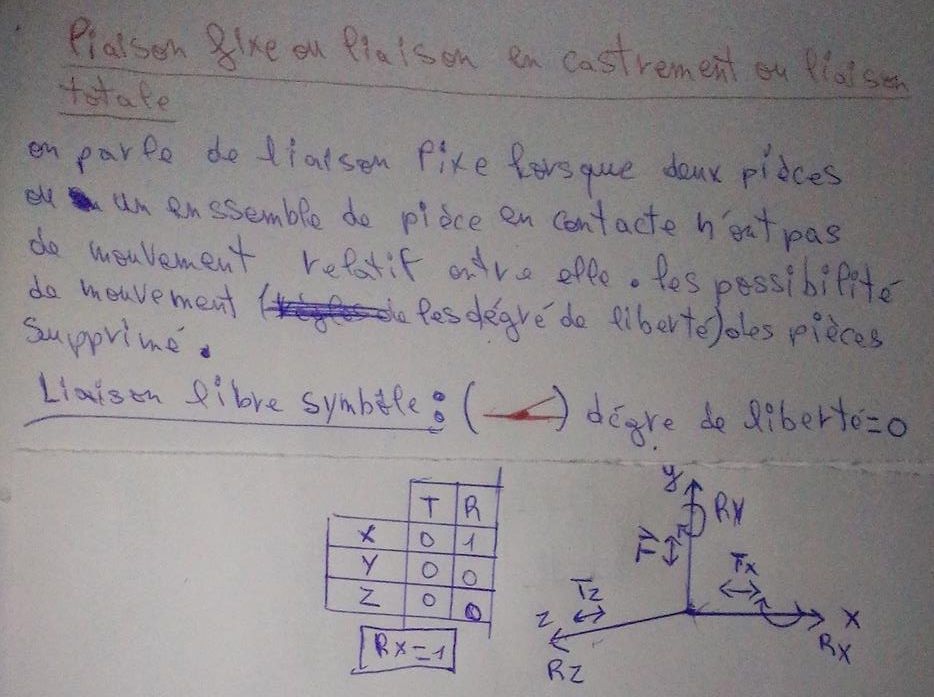 liaison fixe ou liaison en castrement ou liaison
totale
on parle de liaison fixe lorsque deux pièces
ou un enssemble de pièce en contacte n'ont pas
de mouvement relatif entre elle. les possibilité
de mouvement (les dégré de liberté) des pièces
Supprimé.
Liaison libre symbôle : ( ) dégre de liberté=0
T R
X 0 1
Y 0 0
Z 0 0
Rx=1
y
RY
Ty
Tx
Tz
Z
X
Rx
RZ